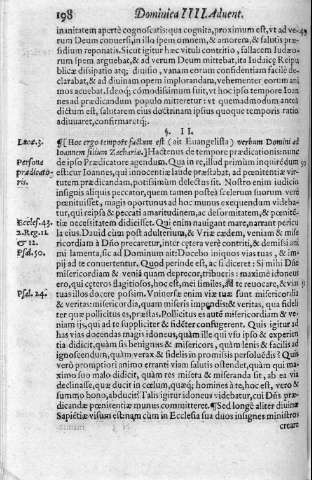 198 Dominica IIII. Aduent.
inanitatem apertè cognoscatis: qua cognita, proximum est, vt ad ve-
rum Deum conuersi, in illo spem omnem, & amorem, & salutis præ-
sidium reponatis. Sicut igitur hæc vituli contritio, fallacem Iudæo-
rum spem arguebat, & ad verum Deum mittebat, ita Iudaicæ Reipu-
blicæ dissipatio atq; diuisio, vanam eorum confidentiam facilè de-
clarabat, & ad diuinam opem implorandam, vehementer eorum ani
mos acuebat. Ideoq; cómodissimum fuit, vt hoc ipso tempore Ioan-
nes ad prædicandum populo mitteretur: vt quemadmodum anteà
dictum est, salutarem eius doctrinam ipsius quoque temporis ratio
adiuuaret, confirmaretq;.
§. II.
Lucæ. 3. ¶ [Hoc ergo tempore factum est (ait Euangelista) verbum Domini ad
Ioannem filium Zachariæ.] Hactenus de tempore prædicationis: nunc
Persona de ipso Prædicatore agendum. Qua in re, illud primùm inquirédum 50
prædicato- est: cur Ioannes, qui innocentiæ laude præstabat, ad pœnitentiæ vir-
ris. tutem prædicandam, potissimùm delectus sit. Nostro enim iudicio
insignis aliquis peccator, quem tamen posteà scelerum suorum verè
pœnituisset, magis oportunus ad hoc munus exequendum videba-
tur, qui reipsa & peccati amaritudinem, ac deformitatem, & pœnité-
Eccles. 43. tiæ necessitatem didicisset. Qui enim nauigant mare, narrant pericu
2. Reg. 11. la eius. Dauid cùm post adulterium, & Vriæ cædem, veniam & mise
& 12. ricordiam à Dño precaretur, inter cętera verè contriti, & demissi ani
Psal. 50. mi lamenta, sic ad Dominum ait: Docebo iniquos vias tuas, & im-
pij ad te conuertentur. Quod perinde est, ac si diceret: Si mihi Dñe
misericordiam & veniã quam deprecor, tribueris: maximè idoneus
ero, qui cęteros flagitiosos, hoc est, mei similes, ad te reuocare, & vias
Psal. 24. tuas illos docere possim. Vniuersæ enim viæ tuæ sunt misericordia
& veritas: misericordia, quam miseris impendis: & veritas, qua fideli
ter quæ pollicitus es, præstas. Pollicitus es autẽ misericordiam & ve-
niam ijs, qui ad te suppliciter & fidẽter confugerent. Quis igitur ad
has vias docendas magis idoneus, quàm ille qui vsu ipso & experien
tia didicit, quàm sis benignus & misericors, quàm lenis & facilis ad
ignoscendum, quàm verax & fidelis in promissis persoluẽdis? Quis
verò promptiori animo erranti viam salutis ostendet, quàm qui ma-
ximo suo malo didicit, quàm res misera & miseranda sit, ab ea via
declinasse, quæ ducit in cœlum, quæq; homines à te, hoc est, vero &
summo bono, abducit? Talis igitur idoneus videbatur, cui Dñs præ-
dicandæ pœnitentiæ munus committeret. ¶ Sed longè aliter diuinæ
Sapiẽtiæ visum est: nam cùm in Ecclesia sua duos insignes ministros
creare